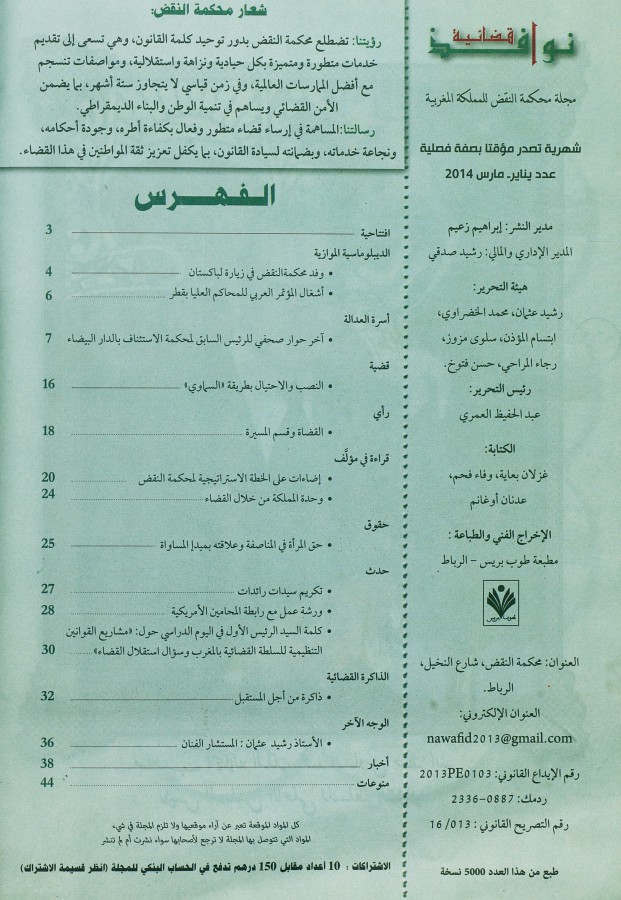 نوافذ قضائية
مجلة محكمة النقض للمملكة المغربية
شهرية تصدر مؤقتا بصفة فصلية
عدد يناير- مارس 2014
مدير النشر: إبراهيم زعيم
المدير الإداري والمالي: رشيد صدقي
هيئة التحرير:
رشيد عثمان، محمد الخضراوي،
ابتسام المؤذن، سلوى مزوز،
رجاء المراحي، حسن فتوخ.
رئيس التحرير:
عبد الحفيظ العمري
الكتابة:
غزلان بعاية، وفاء فحم،
عدنان أوغانم
الإخراج الفني والطباعة :
مطبعة طوب بريس – الرباط
طوب بريس
العنوان: محكمة النقض، شارع النخيل،
الرباط.
العنوان الإلكتروني:
nawafid2013@gmail.com
رقم الإيداع القانوني: 2013PE0103
ردمك: 0887-2336
رقم التصريح القانوني : 013/ 16
طبع من هذا العدد 5000 نسخة
شعار محكمة النقض:
رؤيتنا: تضطلع محكمة النقض بدور توحيد كلمة القانون، وهي تسعى إلى تقديم
خدمات متطورة ومتميزة بكل حيادية ونزاهة واستقلالية، ومواصفات تنسجم
مع أفضل الممارسات العالمية، وفي زمن قياسي لا يتجاوز ستة أشهر، بما يضمن
الأمن القضائي ويساهم في تنمية الوطن والبناء الديمقراطي.
رسالتنا:المساهمة في إرساء قضاء متطور وفعال بكفاءة أطره، وجودة أحكامه،
ونجاعة خدماته، وبضمانته لسيادة القانون، بما يكفل تعزيز ثقة المواطنين في هذا القضاء.
الفهرس
افتتاحية 3
الديبلوماسية الموازية
• وفد محكمةالنقض في زيارة لباكستان 4
• أشغال المؤتمر العربي للمحاكم العليا بقطر 6
أسرة العدالة
• آخر حوار صحفي للرئيس السابق لمحكمة الاستئناف بالدار البيضاء 7
قضية
• النصب والاحتيال بطريقة «السماوي» 16
رأي
• القضاة وقسم المسيرة 18
قراءة في مؤلَّف
• إضاءات على الخطة الاستراتيجية لمحكمة النقض 20
• وحدة المملكة من خلال القضاء 24
حقوق
• حق المرأة في المناصفة وعلاقته بمبدإ المساواة 25
حدث
• تكريم سيدات رائدات 27
• ورشة عمل مع رابطة المحامين الأمريكية 28
• كلمة السيد الرئيس الأول في اليوم الدراسي حول: «مشاريع القوانين
التنظيمية للسلطة القضائية بالمغرب وسؤال استقلال القضاء» 30
الذاكرة القضائية
• ذاكرة من أجل المستقبل 32
الوجه الآخر
• الأستاذ رشيد عثمان : المستشار الفنان 36
أخبار 38
منوعات 44
كل المواد الموقعة تعبر عن آراء موقعيها ولا تلزم المجلة في شيء،
المواد التي تتوصل بها المجلة لا ترجع لأصحابها سواء نشرت أم لم تنشر
الاشتراكات : 10 أعداد مقابل 150 درهم تدفع في الحساب البنكي للمجلة (انظر قسيمة الاشتراك)